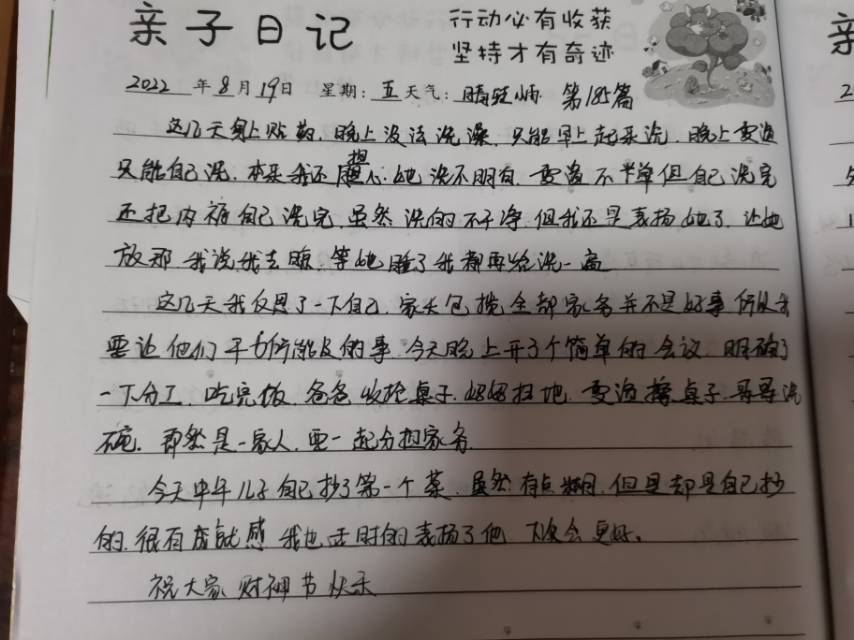 亲子日记
行动必有收获
坚持才有奇迹
2022年8月19日 星期:五 天气:晴 第185篇
这几天身上贴药,晚上没法洗澡,只能早上起来洗,晚上
只能自己洗,本来我还担心她洗不明白,不单但自己洗完
还把内裤自己洗完,虽然洗的不干净,但我还是表扬她了,让她
放那,我说我去晾,等她睡了我都再给洗一遍
这几天我反思了一下自己,家长包揽全部家务并不是好事所以我
要让他们干力所能及的事,今天晚上开了个简单的会议,明确了
一下分工,吃完饭,爸爸收拾桌子,妈妈扫地,擦桌子,哥哥洗
碗,即然是一家人,要一起分担家务
今天中午儿子自己抄了第一个菜,虽然有点糊,但是却是自己抄
的,很有成就感,我也适时的表扬了他,下次会更好。
祝大家财神节快乐
亲